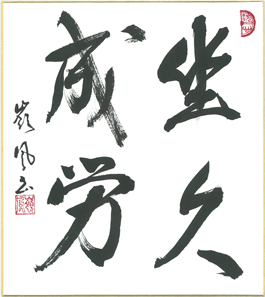 坐久
成労
嶺風書